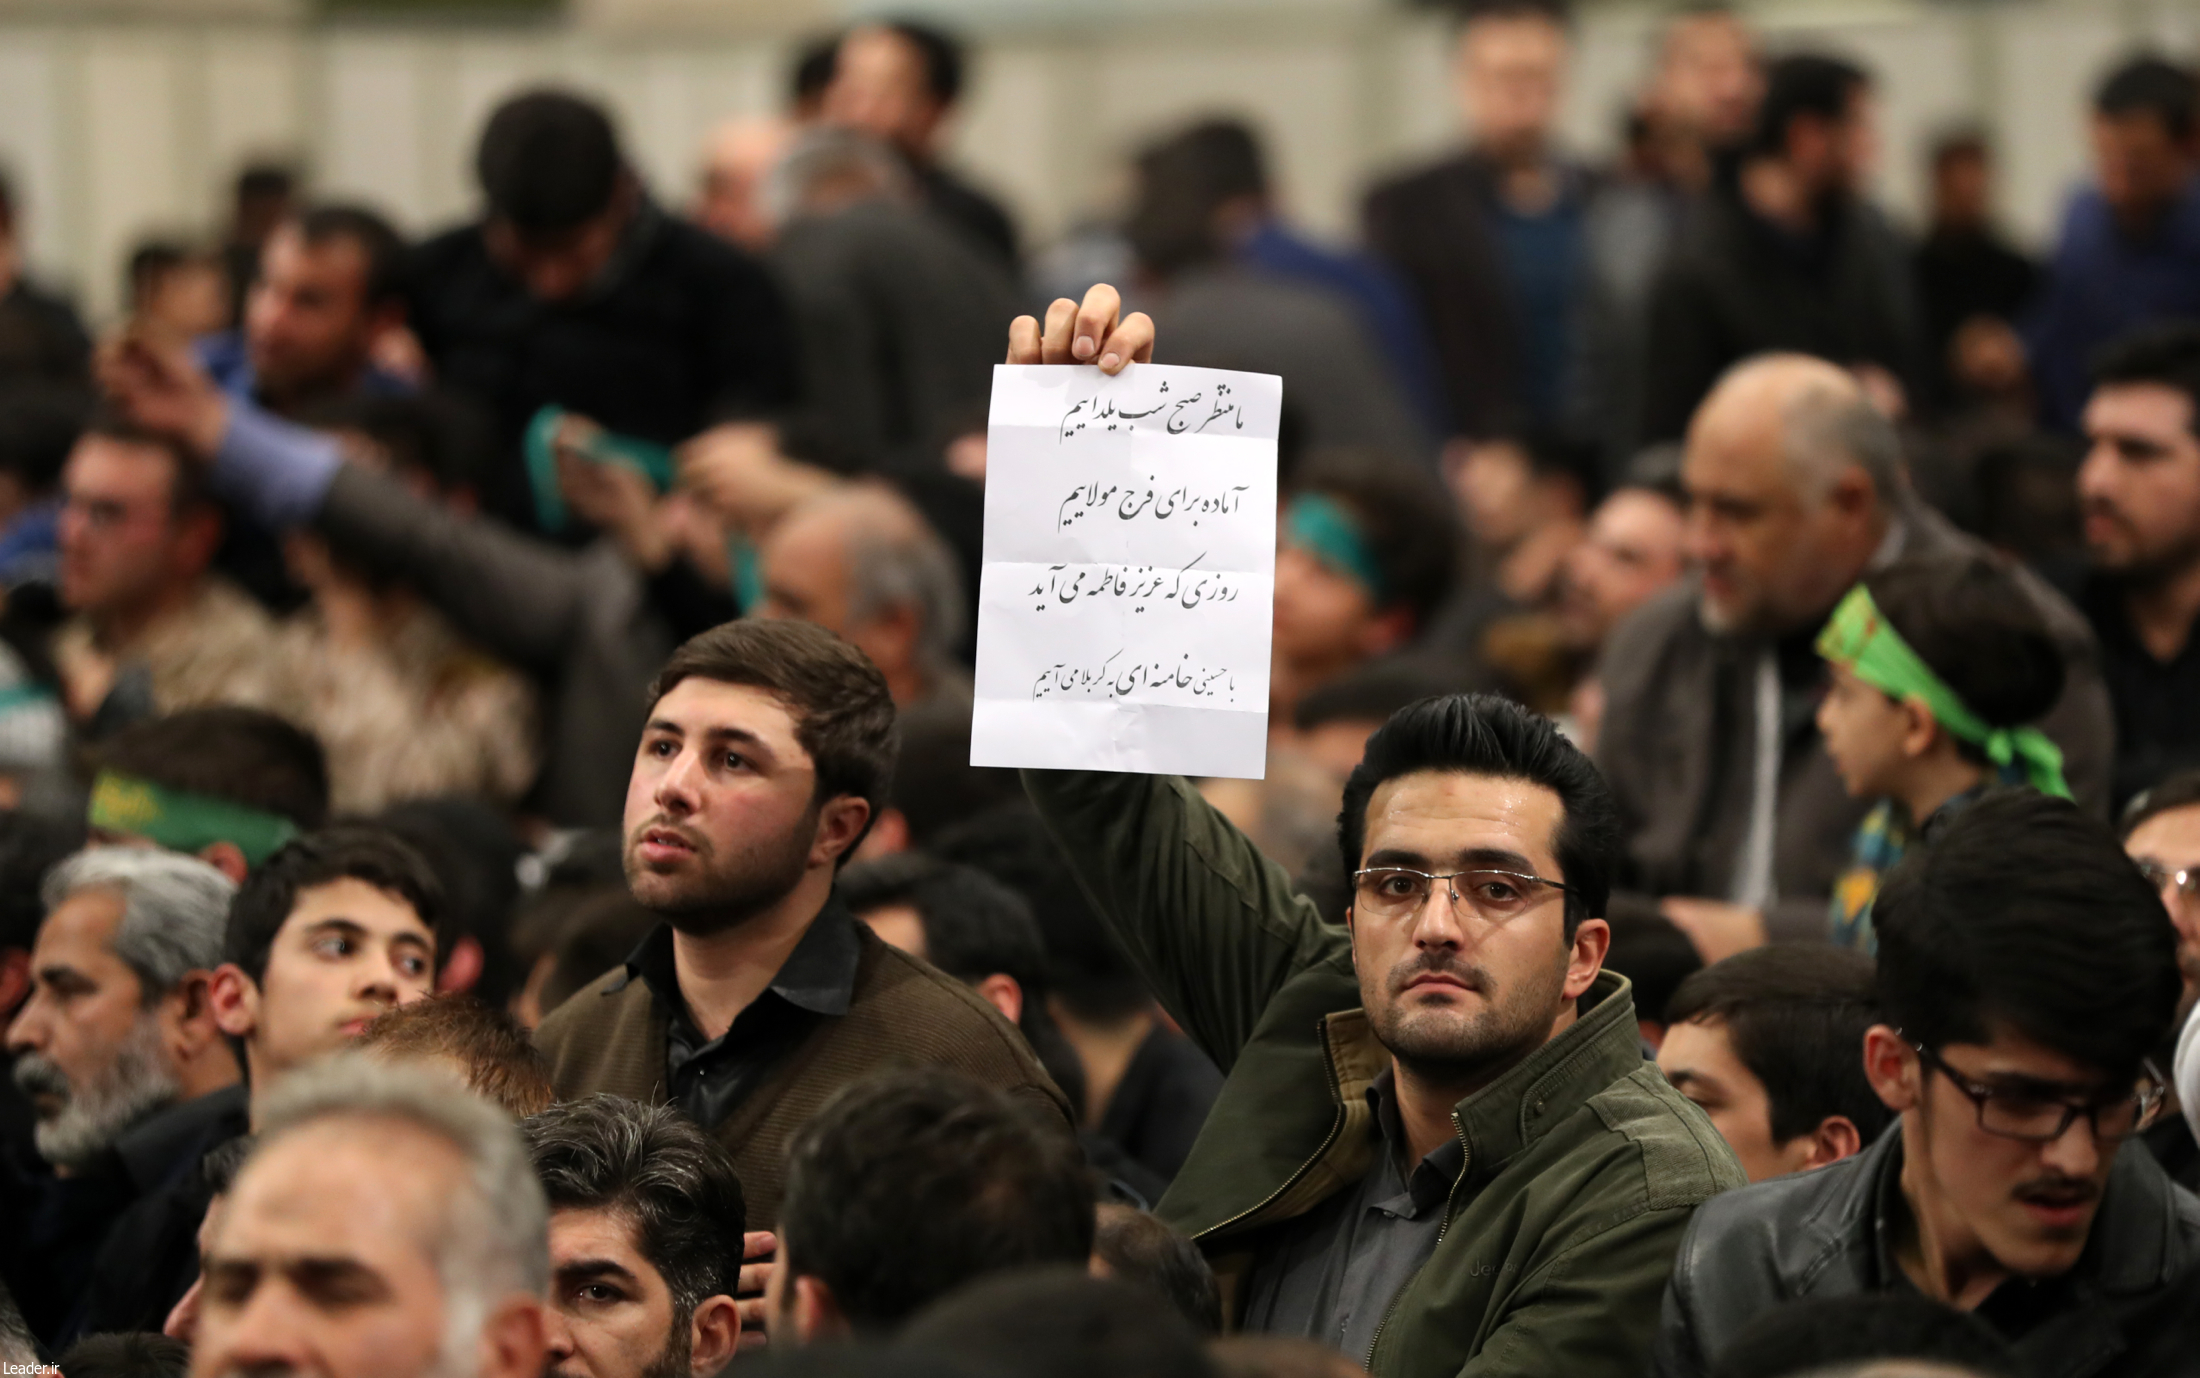 ما منتظر صبح شب یلداییم
آماده برای فرج مولاییم
روزی که عزیز فاطمه می آید
با حسینی خامنه ای به کربلا می آییم
Leader.ir